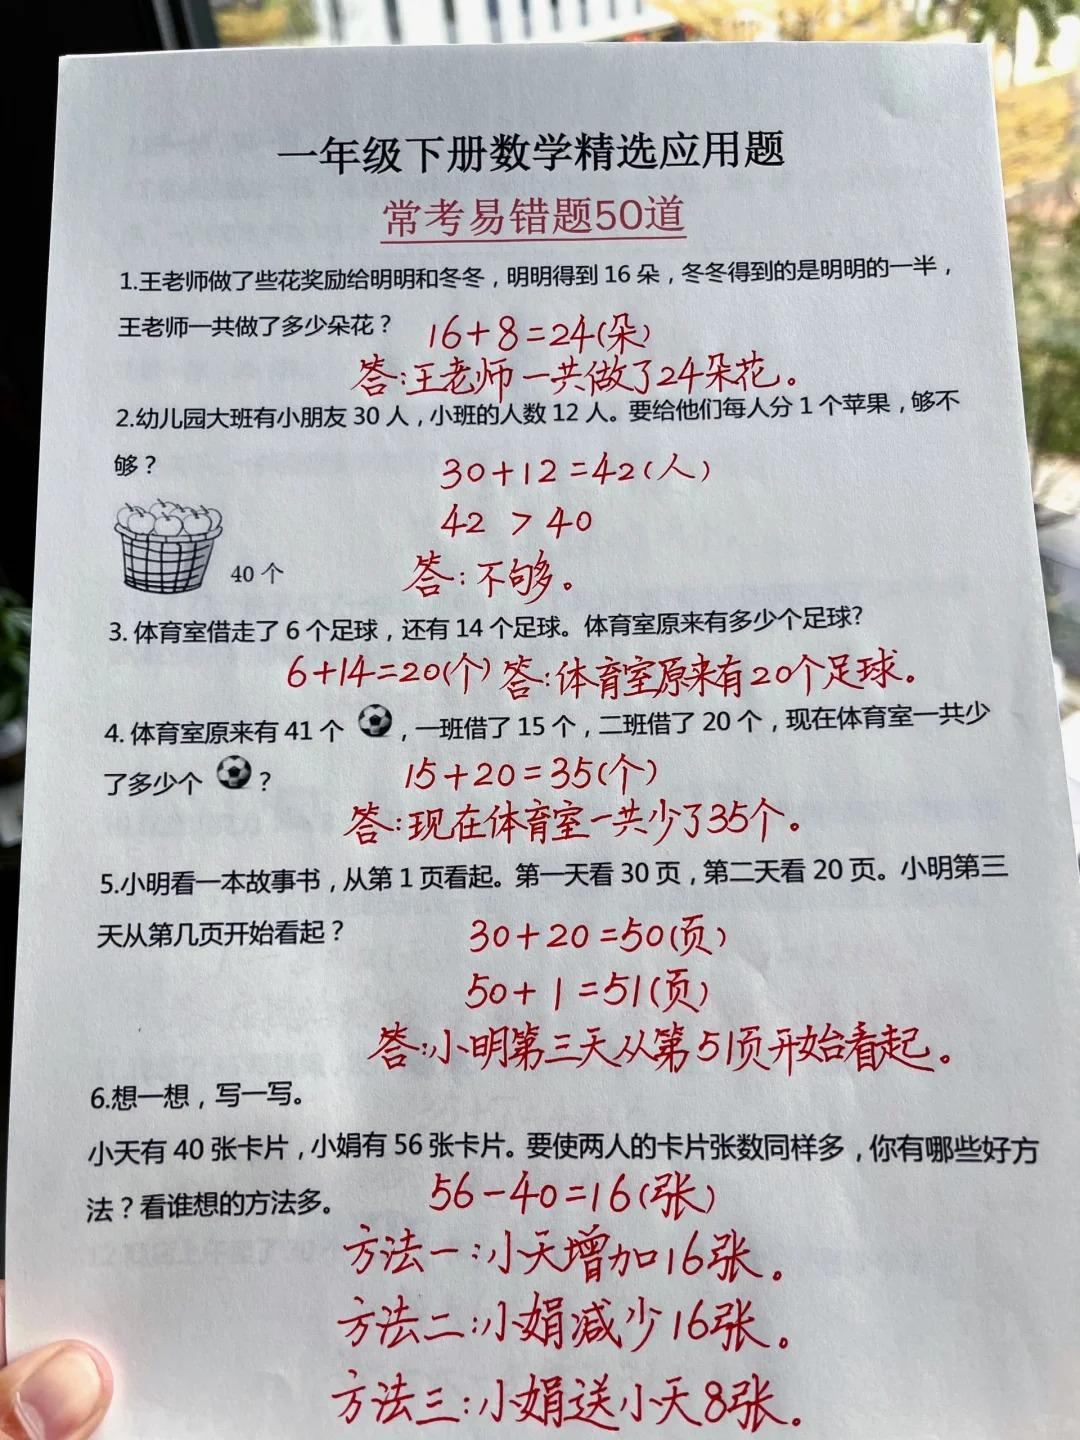 一年级下册数学精选应用题
常考易错题50道
1.王老师做了些花奖励给明明和冬冬，明明得到16朵，冬冬得到的是明明的一半，
王老师一共做了多少朵花？
16+8=24(朵)
答:王老师一共做了24朵花。
2.幼儿园大班有小朋友30人，小班的人数12人。要给他们每人分1个苹果，够不
够？
30+12=42(人)
42 > 40
40个
答:不够。
3. 体育室借走了6个足球，还有14个足球。体育室原来有多少个足球?
6+14=20(个) 答:体育室原来有20个足球。
4. 体育室原来有41个 ，一班借了15个，二班借了20个，现在体育室一共少
了多少个 ？
15+20=35(个)
答:现在体育室一共少了35个。
5.小明看一本故事书，从第1页看起。第一天看30页，第二天看20页。小明第三
天从第几页开始看起？
30+20=50(页)
50+1=51(页)
答:小明第三天从第51页开始看起。
6.想一想，写一写。
小天有40张卡片，小娟有56张卡片。要使两人的卡片张数同样多，你有哪些好方
法？看谁想的方法多。
56-40=16(张)
方法一:小天增加16张。
方法二:小娟减少16张。
方法三:小娟送小天8张。